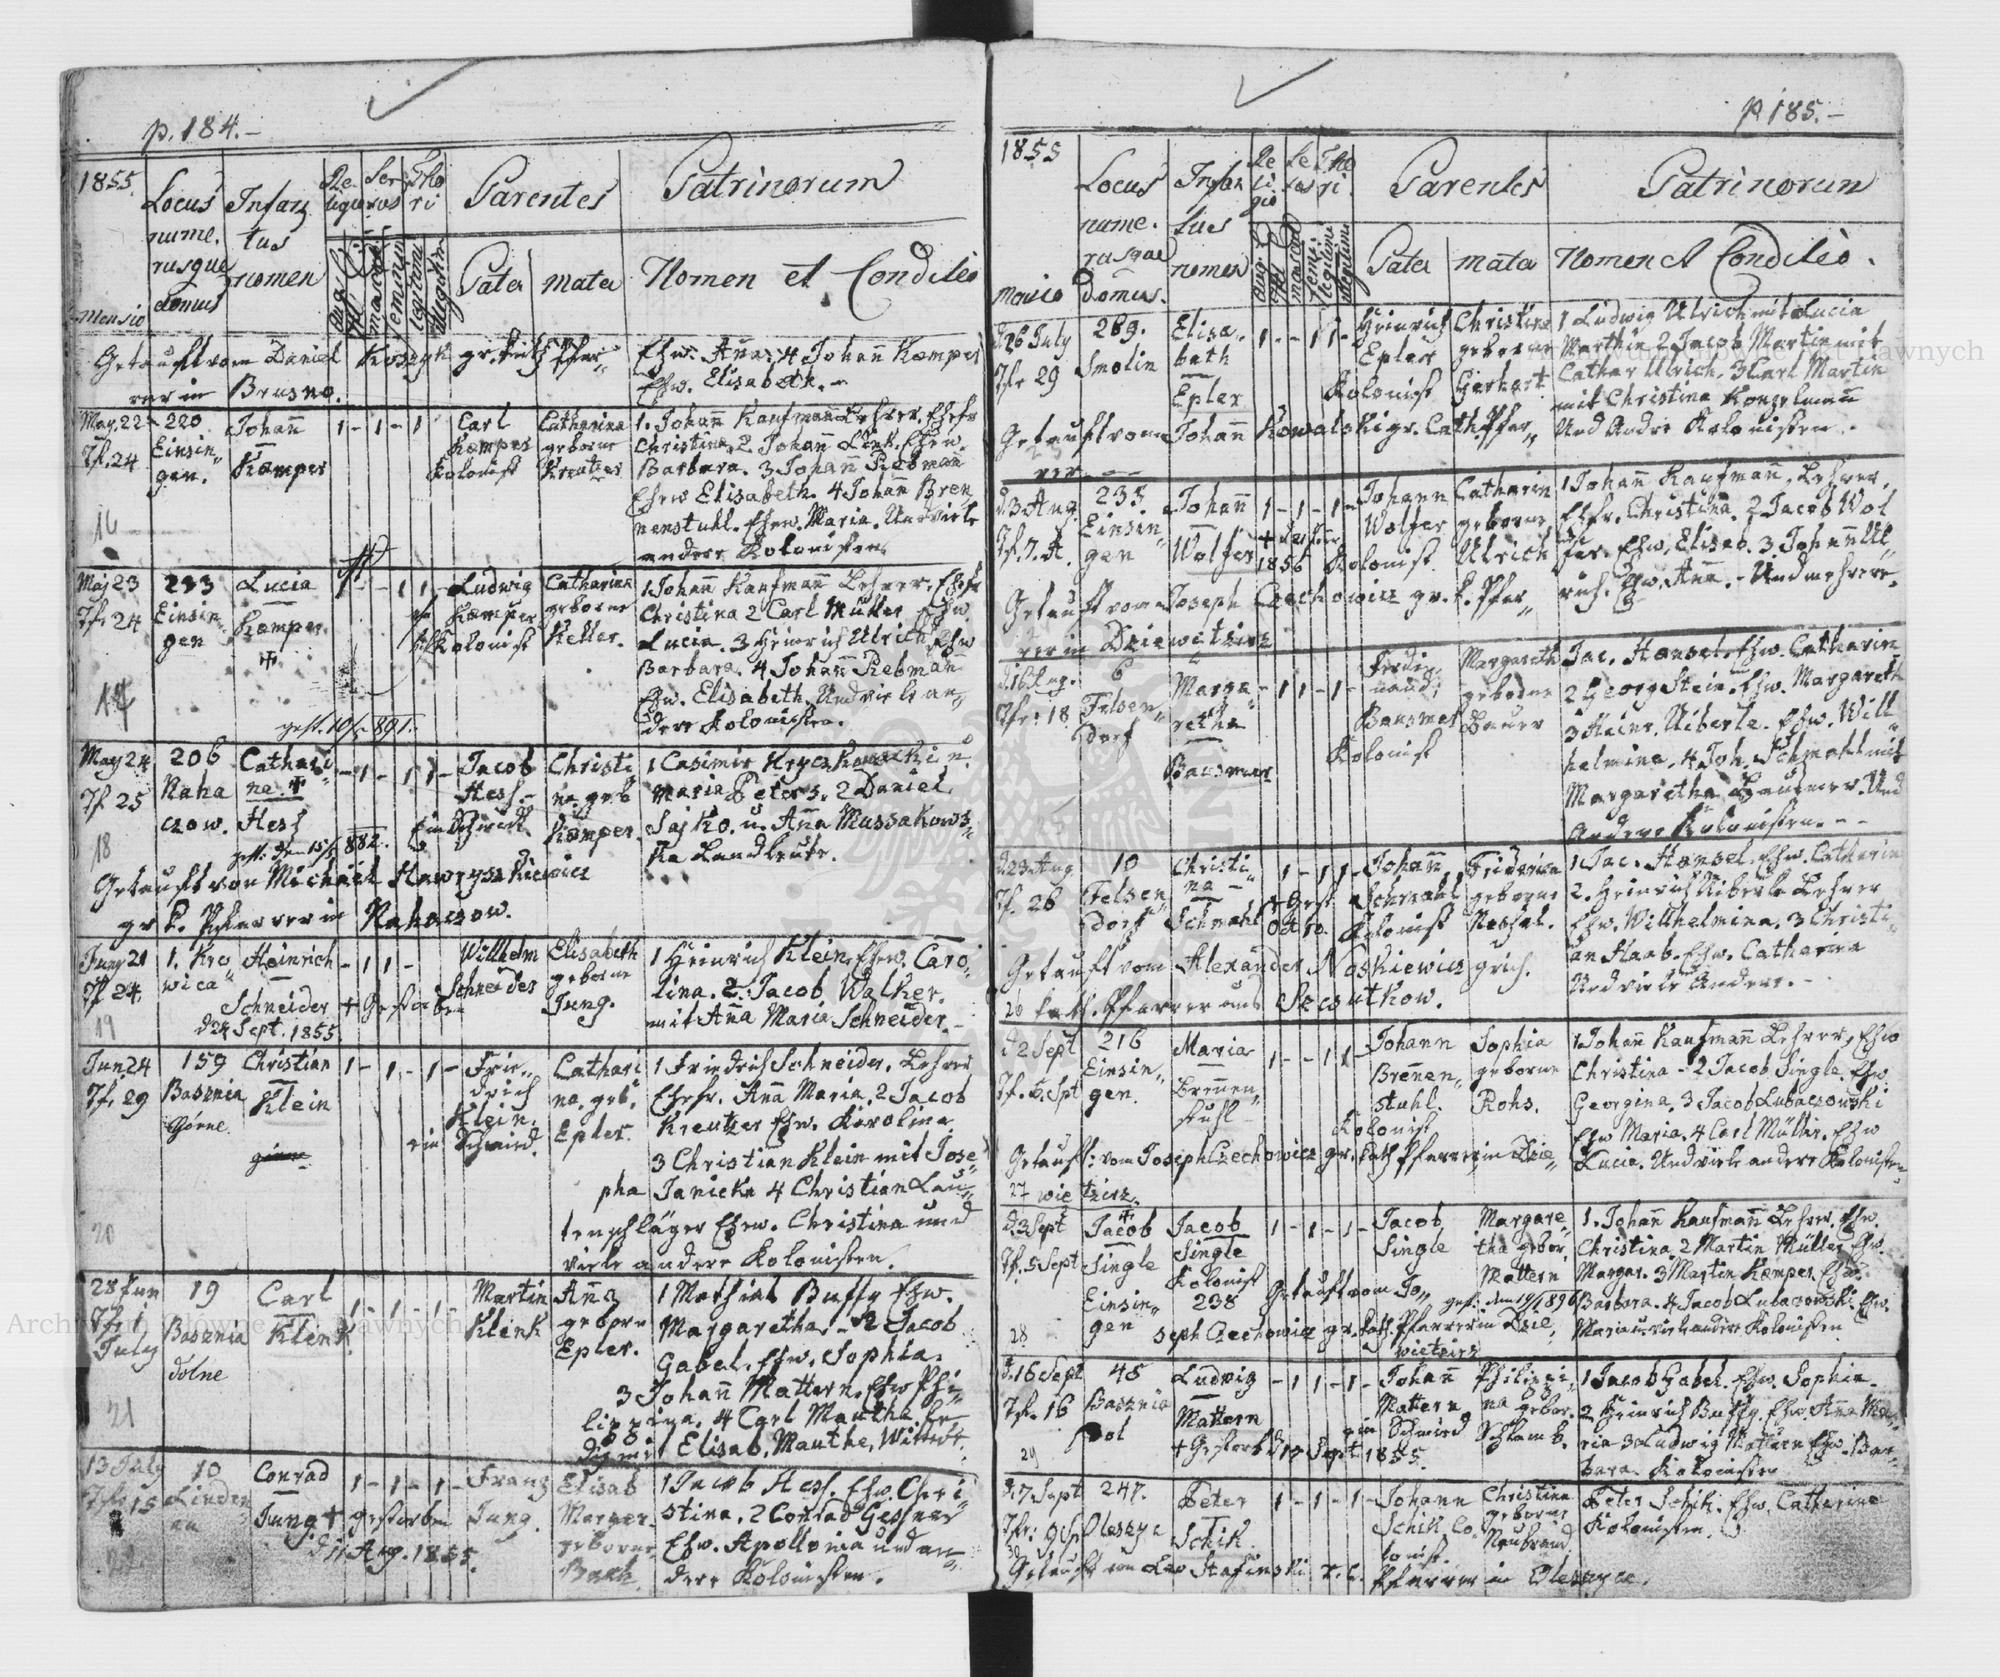 p. 184.-
1855.
Locus
nume.
rusque
domus
Infan
tus
nomen
Re
ligio
Sex
us
Tho
ri
Parentes
Patrinorum
Mensio
Pater
mater
Nomen et Conditio
Getauft vom Daniel Koszyk gr. kath. Pfar„
rer in Brusno.
Ehw. Anna. 4 Johann Kæmper
Ehw. Elisabeth. -
May. 22
Tf. 24
16
220
Einsin„
gen.
Johann
Kæmper
1 - 1 - 1
Carl
Kæmper
Kolonist
Catharina
geborne
Kreutzer
1. Johann Kaufmann Lehrer, Ehefr
Christina, 2 Johann Ehw.
Barbara. 3 Johann Rebman
Ehew Elisabeth. 4 Johann Bren
nenstuhl. Ehew. Maria. Und viele
andere Kolonisten
May 23
Tf. 24
17
233
Einsin„
gen
Lucia
Kæmper.
gest. 10/ 891.
1 - - 1 1 -
Ludwig
Kæmper
Kolonist
Catharina
geborne
Keller.
1 Johann Kaufmann Lehrer. Ehefr
Christina 2 Carl Müller Ehw.
Lucia. 3 Heinrich Ulrich Ehw
Barbara. 4 Johann Rebman
Ehw. Elisabeth. Und viele an„
dere Kolonisten.
May 24
Tf 25
18
206
Naha
czow.
Cathari„
na
Hess
- 1 - 1 1 -
Jacob
Hess. -
Christi
na geb
Kæmper.
1 Casimir Hryczkowacki u.
Maria Peters. 2 Daniel
Sajko. u. Anna Mussakows„
ka Landleute.
Getauft von Michael Hawryszkiewicz
gr k. Pfarrer in Nahaczow.
Juny 21
Tf 24.
19
1. Kro
wica
Heinrich
Schneider
+ Gestorben
d 24 Sept. 1855.
- 1 1 -
Willhelm
Schneider
Elisabeth
geborne
Jung.
1 Heinrich Klein. Ehew. Caro„
lina. 2. Jacob Walker.
mit Anna Maria Schneider.
Jun 24
Tf. 29
20
159
Basznia
Gorne
Christian
Klein
1 - 1 - 1 -
Frie„
drich
Klein.
ein Schmied.
Cathari
na. geb.
Epler.
1 Friedrich Schneider. Lehrer
Ehefr. Anna Maria. 2 Jacob
Kreutzer Ehw. Karolina
3 Christian Klein mit Jose„
pha Janicka 4 Christian Lau„
tenschläger Ehew. Christina und
viele andere Kolonisten.
28 Jun
Tf. 1
July
21
19
Basznia
dolne
Carl
Klenk
1 - 1 - 1 -
Martin
Klenk
Anna
geborn
Epler.
1 Mathias Buffy Ehw.
Margaretha. - 2 Jacob
Gabel. Ehw. Sophia.
3 Johann Mattern. Ehw Phi„
lippina. 4 Carl Manthe. le„
dig mit Elisab. Mauthe,
13 July
Tf. 15
10
Linden
au
Conrad
Jung + gestorben
d 11 Aug. 1855.
1 - 1 - 1 -
Franz
Jung.
Elisab
Marger.
geborne
Bach.
1 Jacob Hess. Ehw. Chri„
stina, 2 Conrad Gessner
Ehw. Apollonia und an„
dere Kolonisten.
p. 185.-
1855
Locus
nume.
rusque
domus.
Infan
tus
nomen
Re
li
gio
Se
xus
Tho
ri.
Parentes
Patrinorum
Mensio
Pater
mater
Nomen et Conditio.
d 26 July
Tfr 29
269.
Smolin
Elisa„
beth
Epler
1 - - 1 1 -
Heinrich
Epler
Kolonist
Christina
geborne
Gerhart
1 Ludwig Ulrich mit Lucia
Manthin 2 Jacob Martin mit
Cathar Ulrich. 3 Carl Martin
mit Christina Konzelmann
Und Andre Kolonisten.
Getauft vom Johann Kowalski gr. Cath. Pfar„
rer. - -
d. 3 Aug.
Tf. 7. A.
235.
Einsin„
gen
Johann
Wolfer
1 - 1 - 1 -
1856
Johann
Wolfer
Kolonist.
Catharin
geborne
Ulrich
1 Johann Kaufmann, Lehrer,
Ehfr. Christina. 2 Jacob Wol
fer. Ehw, Elisab. 3 Johann Ul„
rich. Ehw. Anna. - Und mehrere.
Getauft vom Joseph Czechowicz gr. k. Pfar„
rer in Dziewitzirz
d. 16 Aug.
Tfr: 18
6
Felsen„
dorf
Marga„
retha
Bausmer
- 1 1 - 1 -
Ferdi„
nand,
Bausmer
Kolonist
Margareth
geborne
Bauer
Jac. Hansel. Ehw. Catharin
2 Georg Stein. Ehw. Margareth
3 Heinr. Uiberle. Ehw. Will„
helmina. 4 Joh. Schmahl mit
Margaretha Bausmer. Und
Andere Kolonisten. - -
d 23 Aug
Tf. 26
10
Felsen„
dorf
Christi„
na -
Schmahl
1 - - 1 1 -
+ Gest.
Johann
Schmahl
Kolonist
Friderica
geborne
1 Jac. Hansel. Ehw. Catharin
2. Heinrich Uiberle Lehrer
Ehw. Willhelmina. 3 Christi„
an Haab. Ehw. Catharina
Und viele Andere. -
Getauft vom Alexander Noskiewicz grich.
26 kath. Pfarrer aus Szczutkow.
d 2 Sept
Tf. 5. Spt
216
Einsin„
gen.
Maria
Brennen„
stuhl
1 - - 1 1 -
Johann
Brenen„
stuhl.
Kolonist
Sophia
geborne
Rohs.
1 Johann Kaufmann Lehrer, Ehw
Christina - 2 Jacob Single. Ehw.
Georgina. 3 Jacob Lubaczowski
Ehw Maria. 4 Carl Müller. Ehw
Lucia. Und viele andere Kolonisten
Getauft: vom Joseph Czechowicz gr. kath Pfarrer in Dzie„
27 wie tzirz.
d. 3 Sept
Tf. 5 Sept
28
Jacob
Single
Einsin„
gen
Jacob
Single
Kolonist
238
1 - 1 - 1 -
Jacob
Single
Margare„
tha gebor,
Mattern
gest. dem 19/ 1896
1. Johann Kaufmann Lehrer. Ehw.
Christina. 2 Martin Müller. Ehw.
Margar. 3 Martin Kæmper. Ehw.
Barbara. 4 Jacob Lubaczowski. Ehw.
Maria u. viele andere Kolonisten
Getauft vom Jo„
seph Czechowicz gr. kath. Pfarrer in Dzie„
wietzirz
d. 16 Sept
Tfr. 16
29
48
Basznia
Dol
Ludwig
Mattern
- 1 1 - 1 -
Johann
Mattern
ein Schmied
Philippi„
na gebor.
Schlamb.
1 Jacob Gabel. Ehw. Sophia.
2 Heinrich Buffy. Ehw. Anna Ma„
ria 3 Ludwig Mattern Ehw. Bar„
bara. Kolonisten
+ Gestorb d 10 Sept 1855.
d 7 Sept
Tfr: 9 Sp
30
247.
Oleszyc
Peter
Schik.
1 - 1 - 1 -
Johann
Schik Co„
lonist.
Christina
geborne
Neubrand.
Peter Schik. Ehw. Catherina
Kolonisten.
Getauft von Leo Stafinski r. l. Pfarrer in Oleszyce.